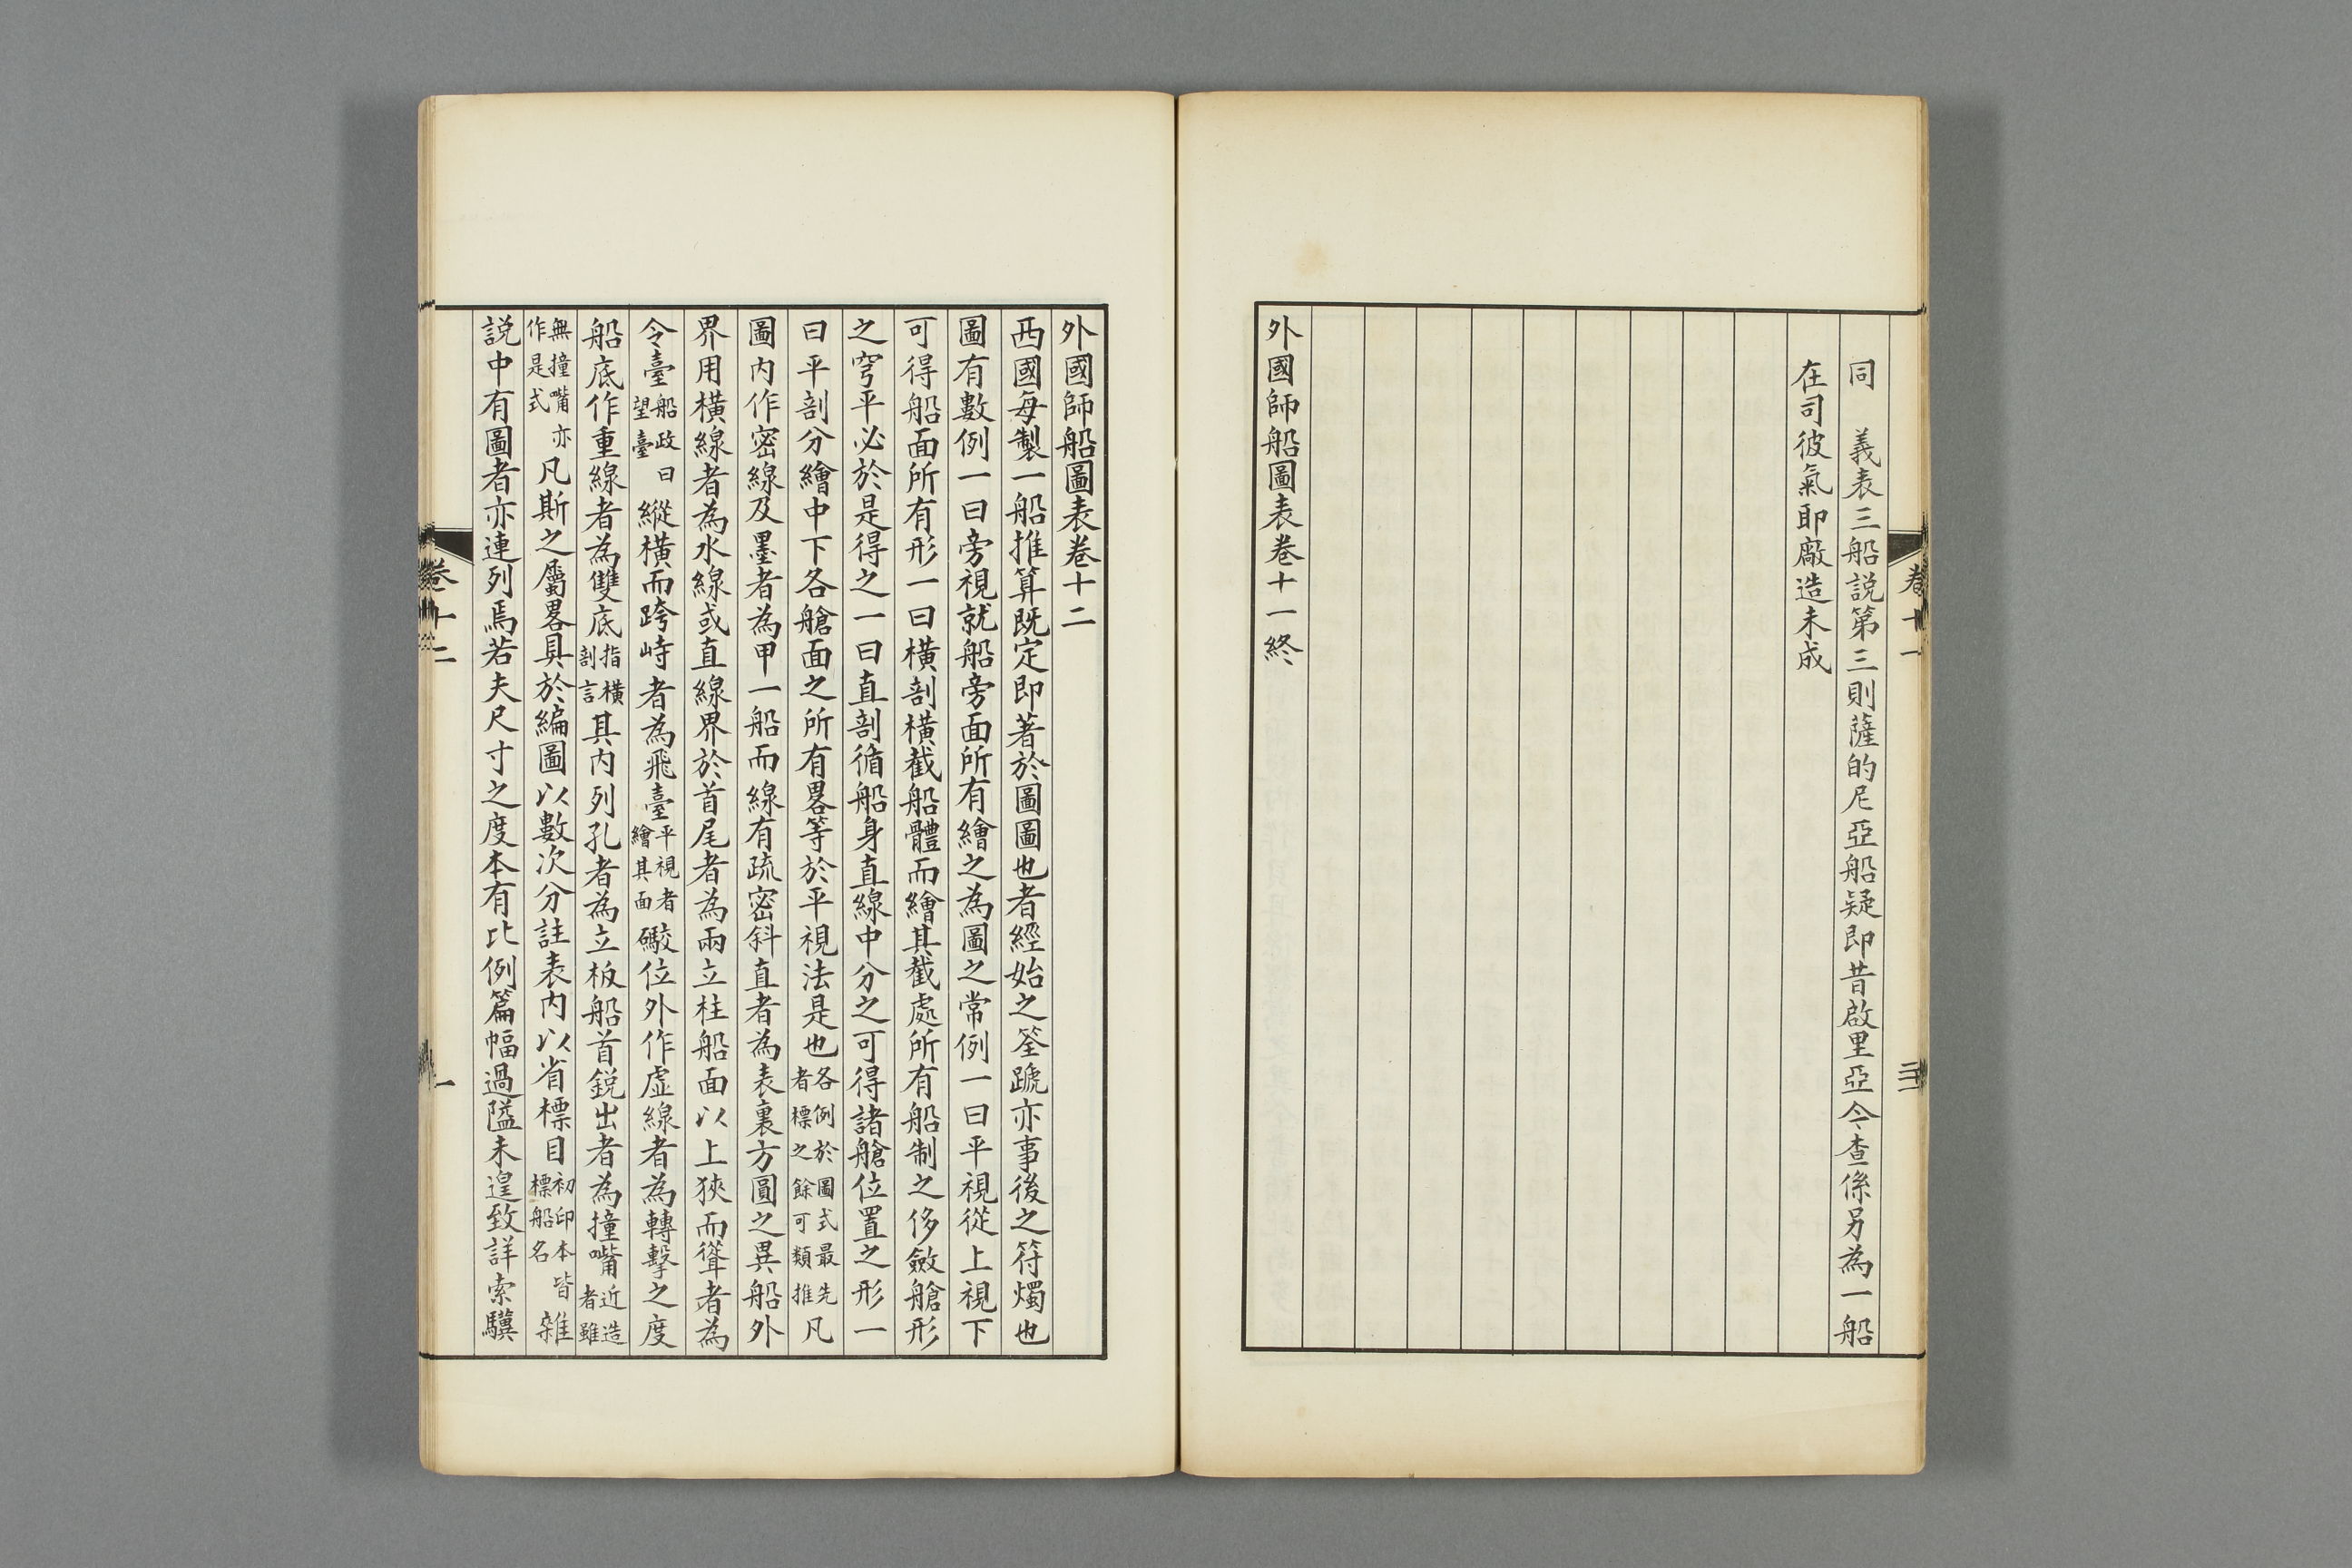 卷十一
三十一
同　義表三船説第三則薩的尼亞船疑即昔啟里亞今查係另為一船
在司彼氣耶廠造未成
外國師船圖表卷十一終
外國師船圖表卷十二
西國每製一船推算既定即著於圖圖也者經始之筌蹏亦事後之符燭也
圖有數例一曰旁視就船旁面所有繪之為圖之常例一曰平視從上視下
可得船面所有形一曰橫剖橫截船體而繪其截處所有船制之侈斂艙形
之穹平必於是得之一曰直剖循船身直線中分之可得諸艙位置之形一
曰平剖分繪中下各艙面之所有畧等於平視法是也各例於圖式最先者標之餘可類推凡
圖内作密線及墨者為甲一船而線有疏密斜直者為表裏方圓之異船外
界用橫線者為水線或直線界於首尾者為兩立柱船面以上狹而聳者為
令臺船政曰望臺縱橫而跨峙者為飛臺平視者繪其面礮位外作虛線者為轉擊之度
船底作重線者為雙底指橫剖言其内列孔者為立板船首銳出者為撞嘴近造者雖
無撞嘴亦作是式凡斯之屬畧具於編圖以數次分註表内以省標目初印本皆標船名雑
説中有圖者亦連列焉若夫尺寸之度本有比例篇幅過隘未遑致詳索驥
卷十二
一